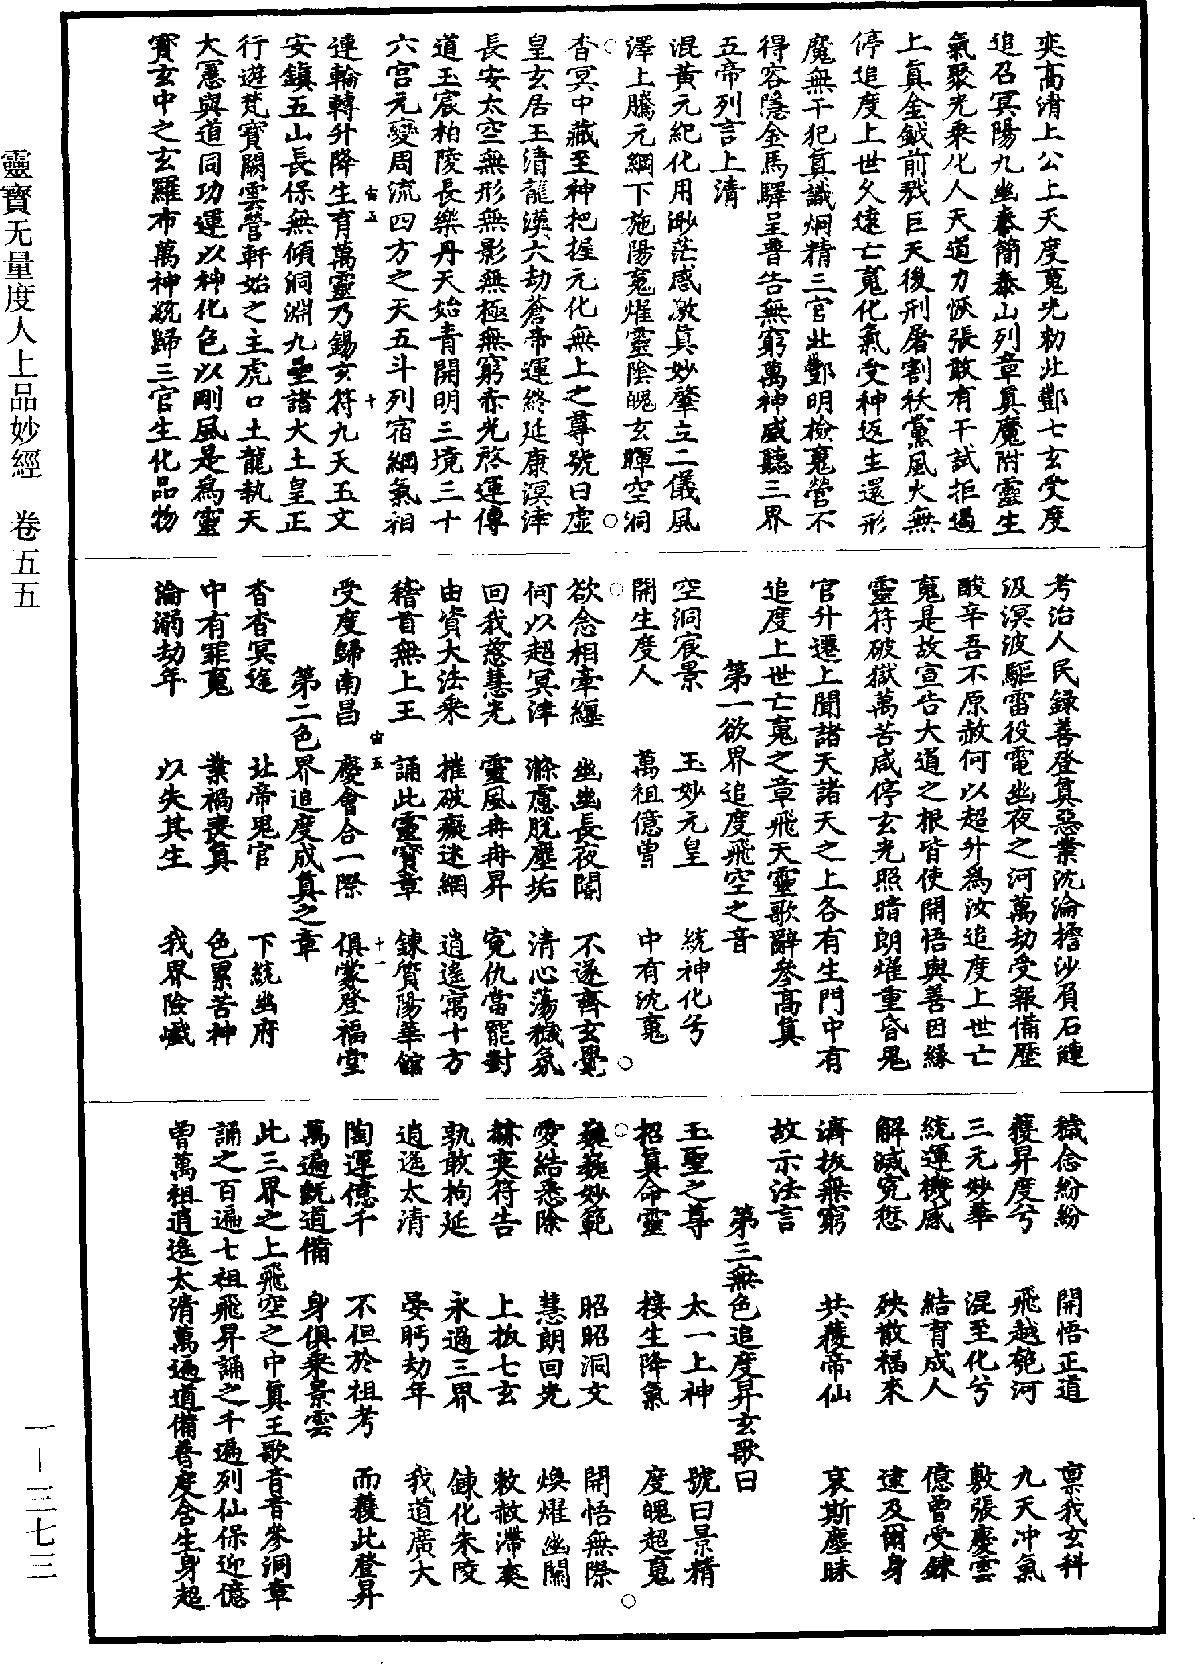 奕高清上公上天度䰟光勑北酆七玄受度
追召冥陽九幽奏簡泰山列章真魔附靈生
氣聚光乘化人天道力恢張敢有干試拒遏
上真金鉞前戮巨天後刑屠割秡黨風火無
停追度上世久遠亡䰟化氣受神返生還形
魔無干犯真識炯精三官北酆明檢䰟營不
得容隱金馬驛呈普告無窮萬神咸聽三界
五帝列言上清
混黃元紀化用渺茫感激真妙肇立二儀風
澤上騰元綱下施陽䰟燿靈陰魄玄暉空洞
杳冥中藏至神把握元化無上之尊號曰虛
皇玄居玉清龍漢六劫蒼帝運終延康溟涬
長安太空無形無影無極無窮赤光啓運傳
道玉宸柏陵長樂丹天始青開明三境三十
六宫元變周流四方之天五斗列宿綱氣相
宙五　十
連輪轉升降生育萬靈乃錫玄符九天玉文
安鎮五山長保無傾洞淵九壘諸大土皇正
行遊梵寶闕雲營軒始之主虎口土龍執天
大憲與道同功運以神化色以剛風是為靈
寶玄中之玄羅布萬神統歸三官生化品物
考治人民録善登真惡業沈淪擔沙負石漣
汲溟波驅雷役電幽夜之河萬劫受報備歷
酸辛吾不原赦何以超升為汝追度上世亡
䰟是故宣告大道之根皆使開悟與善因緣
靈符破獄萬苦咸停玄光照暗朗燿重昏鬼
官升遷上聞諸天諸天之上各有生門中有
追度上世亡䰟之章飛天靈歌辭參高真
第一欲界追度飛空之音
空洞宸景　玉妙元皇　統神化兮
開生度人　萬祖億曾　中有沈䰟
欲念相牽纏　幽幽長夜閽　不遂齊玄覺
何以超冥津　滌慮脱塵垢　清心蕩穢氛
回我慈慧光　靈風冉冉昇　寃仇當罷對
由資大法乘　摧破癡迷網　逍遥寓十方
稽首無上王　誦此靈寳章　鍊質陽華館
受度歸南昌　慶會合一際　俱蒙登福堂
宙五　十一
第二色界追度成真之章
杳杳冥途　北帝鬼官　下統幽府
中有罪䰟　業禍喪真　色累苦神
淪溺劫年　以失其生　我界險巇
穢念紛紛　開悟正道　禀我玄科
獲昇度兮　飛越䰢河　九天冲氣
三元妙華　混至化兮　敷張慶雲
統運機感　結育成人　億曾受錬
解滅寃愆　殃散福來　逮及爾身
濟拔無窮　共獲帝仙　哀斯塵昧
故示法言
第三無色追度昇玄歌曰
玉聖之尊　太一上神　號曰景精
招真命靈　接生降氣　度魄超䰟
巍巍妙範　昭昭洞文　開悟無際
愛結悉除　慧朗回光　煥燿幽關
赫奕符告　上拔七玄　敕赦滯爽
孰敢拘延　永過三界　錬化朱陵
逍遥太清　晏眄劫年　我道廣大
陶運億千　不但於祖考　而獲此登昇
萬遍既道備　身俱乘景雲
此三界之上飛空之中真王歌音音參洞章
誦之百遍七祖飛昇誦之千遍列仙保迎億
曾萬祖逍遥太清萬遍道備普度含生身超
靈寶无量度人上品妙經　卷五五
一—三七三